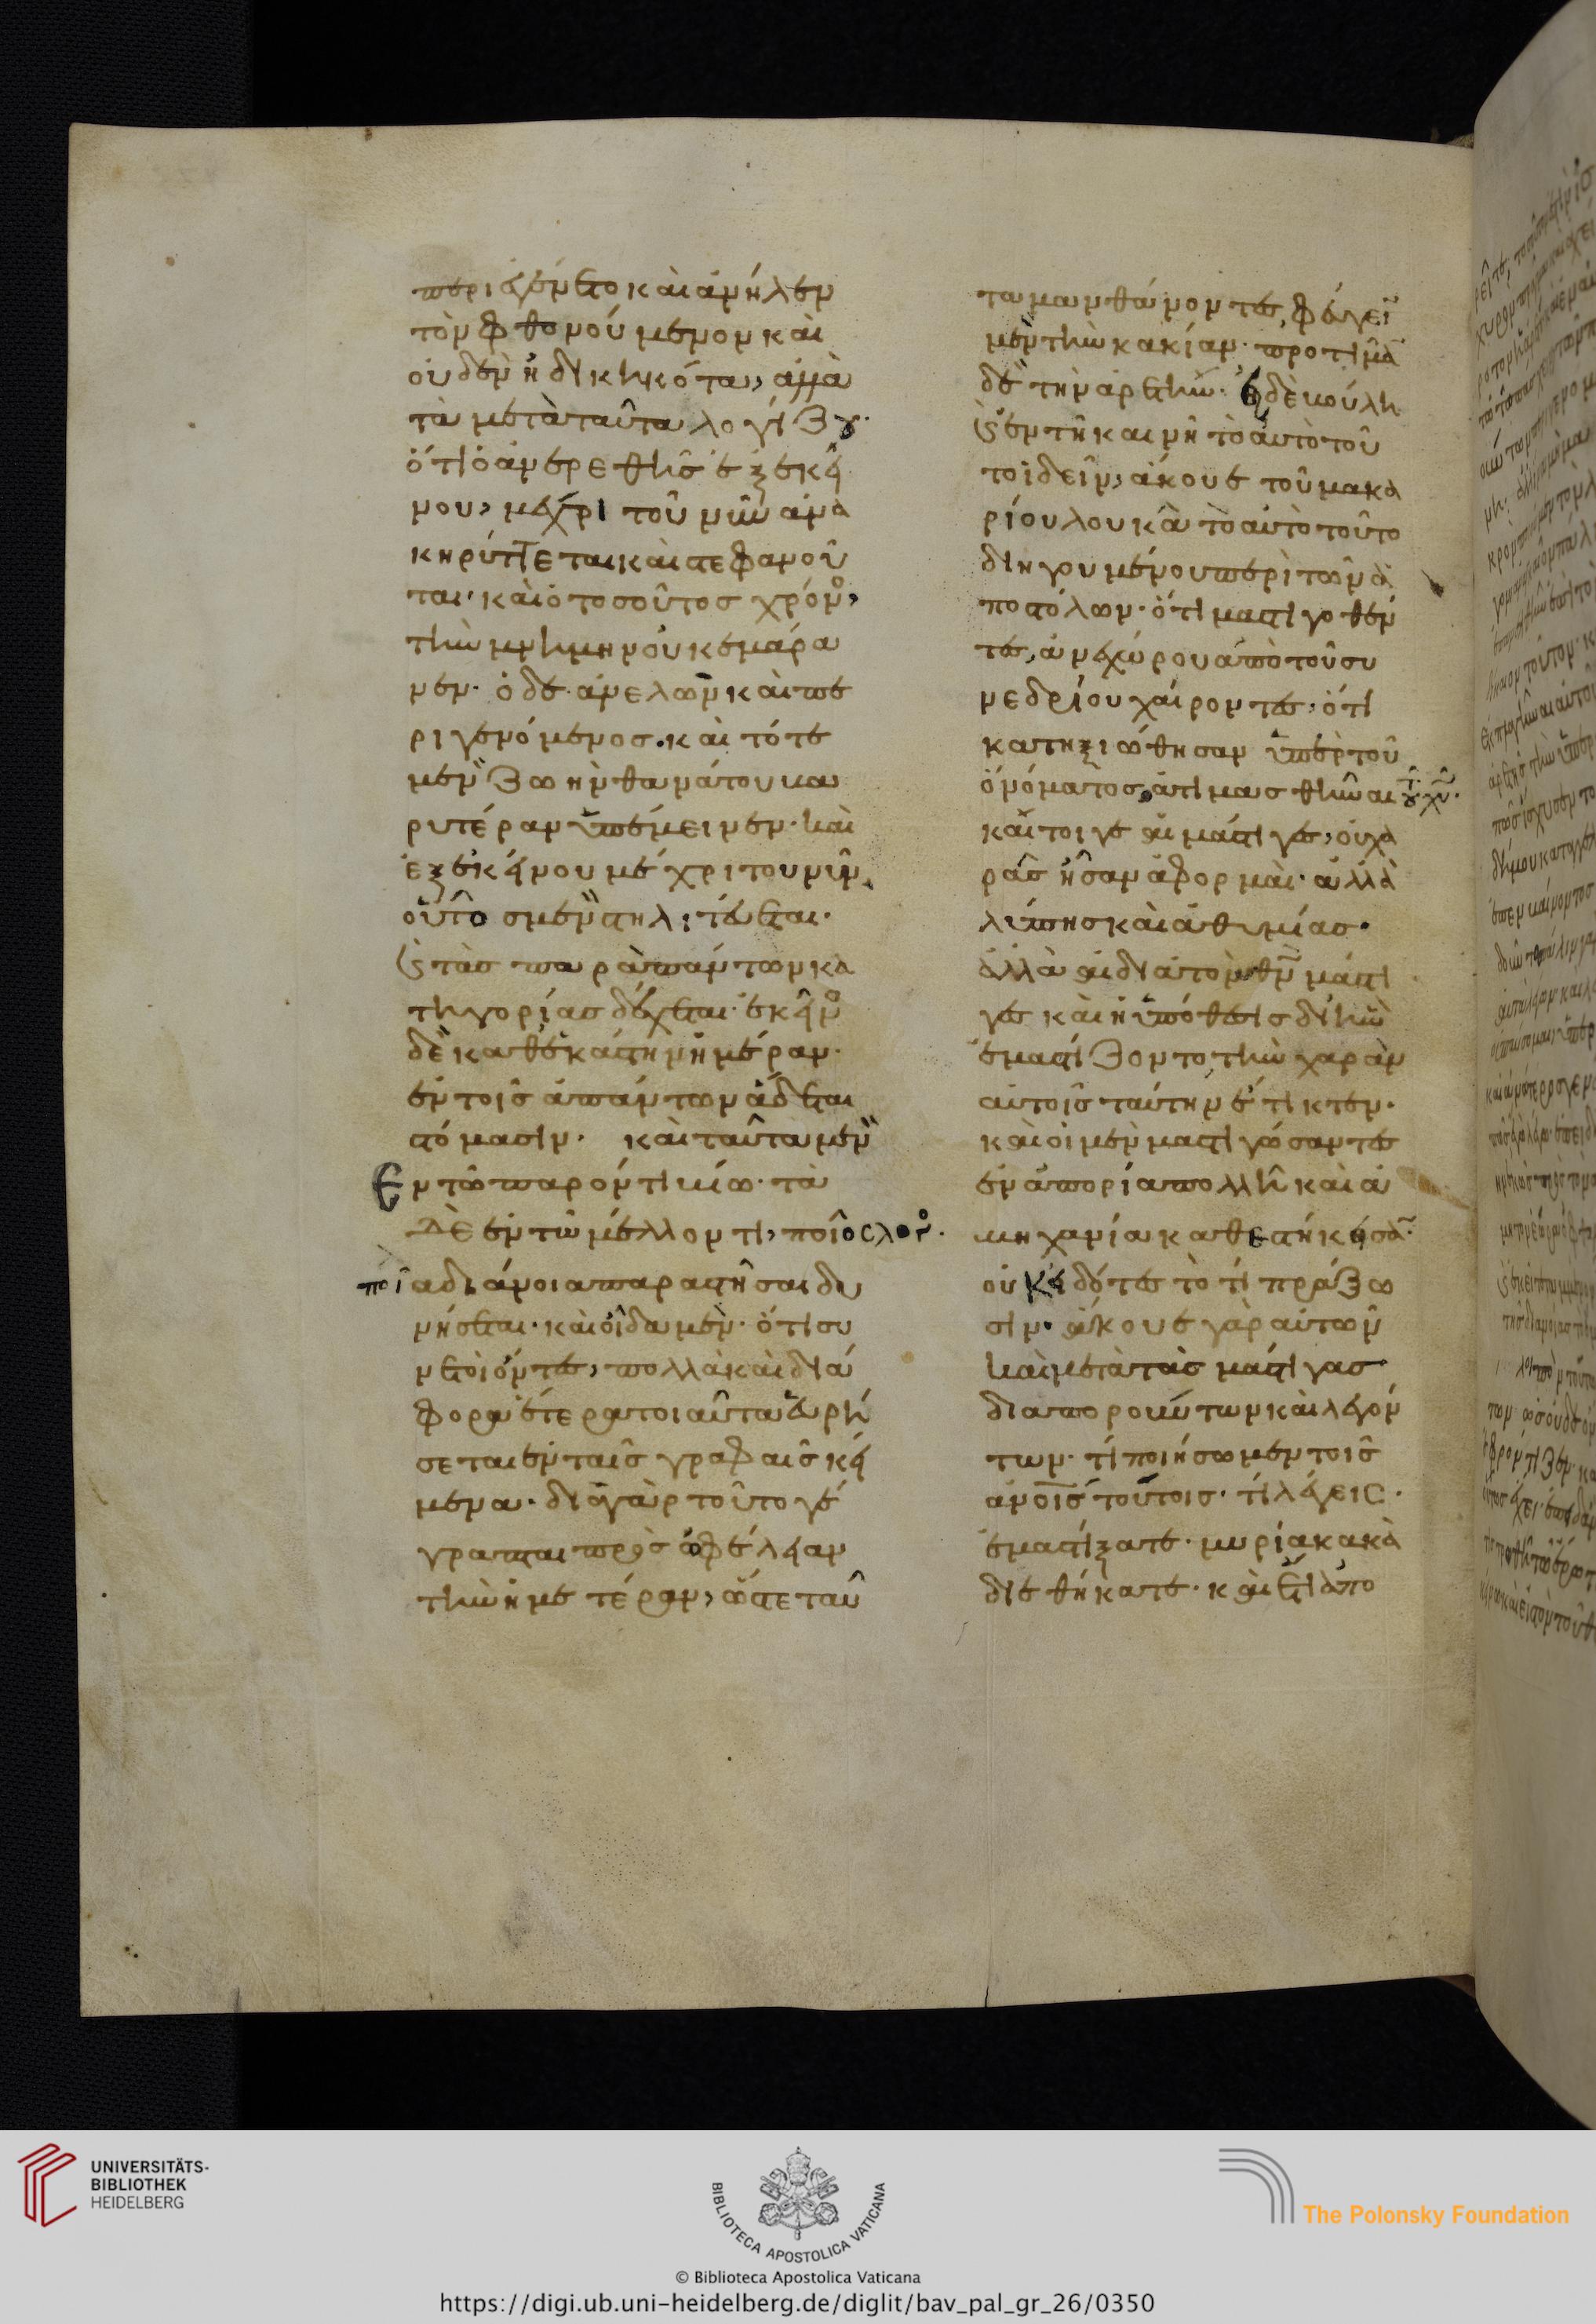 περιεγένετο καὶ ἀνῆλεν
τὸν φθονούμενον καὶ
οὐδὲν ἠδικηκότα, ἀλλὰ
τὰ μετὰ ταῦτα λογίζου·
ὅτι ὁ ἀναιρεθεὶς ἐξ ἐκεί
νου, μέχρι τοῦ νῦν ἀνα
κηρύττεται καὶ στεφανοῦ
ται· καὶ ὁ τοσοῦτος χρόνος,
τὴν μνήμην οὐκ ἐμάρα
νεν· ὁ δὲ ἀνελὼν καὶ πε
ριγενόμενος· καὶ τότε
μὲν ζωὴν θανάτου κα
ρυτέραν ὑπέμεινεν· καὶ
ἐξ ἐκείνου μέχρι τοῦ νῦν
οὗτος μὲν στηλιτεύεται·
καὶ τὰς παρὰ πάντων κα
τηγορίας δέχεται· ἐκεῖνος
δὲ καθ' ἑκάστην ἡμέραν·
ἐν τοῖς ἁπάντων ἄδεται
στόμασιν· καὶ ταῦτα μὲν
Ἐν τῶ παρόντι βίω· τὰ
δὲ ἐν τῶ μέλλοντι, ποῖος λόγος·
ποία διάνοια παραστῆσαι δυ
νήσεται· καὶ οἶδα μὲν· ὅτι συ
νετοὶ ὄντες, πολλὰ καὶ διά
φορα ἕτερα τοιαῦτα εὑρή
σεται ἐν ταῖς γραφαῖς κεί
μενα· διὰ γὰρ τοῦτο γέ
γραπται πρὸς ὠφέλειαν
τὴν ἡμετέραν, ὥστε ταῦ
τα μανθάνοντες, φεύγειν
μὲν τὴν κακίαν· προτιμᾶν
δὲ τὴν ἀρετήν· Εἰ δὲ βούλη
καὶ ἐν τῆ καινῆ τὸ αὐτὸ τοῦ
το ἰδεῖν, ἄκουε τοῦ μακα
ρίου λουκᾶ τὸ αὐτὸ τοῦτο
διηγουμένου περὶ τῶν ἀ
ποστόλων· ὅτι μαστιγοθέν
τες, ἀνεχώρουν ἀπὸ τοῦ συ
νεδρίου χαίροντες, ὅτι
κατηξιώθησαν ὑπὲρ τοῦ
ὀνόματος ἀτιμασθῆναι τοῦ χυ·
καίτοιγε αἱ μάστιγες, οὐ χα
ρᾶς ἦσαν ἀφορμαὶ· ἀλλὰ
λύπης καὶ ἀθυμίας·
ἀλλὰ αἱ διὰ τὸν θν μάστι
γες καὶ ἡ ὑπόθεσις δι' ἣν
ἐμαστίζοντο, τὴν χαρὰν
αὐτοῖς ταύτην ἔτικτεν·
καὶ οἱ μὲν μαστιγώσαντες
ἐν ἀπορία πολλῆ καὶ ἀ
μηχανία καθεστήκεσαν·
οὐκ εἰδότες τὸ τί πράξω
σιν· ἄκουε γὰρ αὐτῶν
καὶ μετὰ τὰς μάστιγας
διαπορούντων καὶ λεγόν
των· τί ποιήσωμεν τοῖς
ανοις τούτοις· τί λέγεις·
ἐμαστίξατε· μυρία κακὰ
διεθήκατε· καὶ ἔτι ἀπο
UNIVERSITÄTS-
BIBLIOTHEK
HEIDELBERG
BIBLIOTECA APOSTOLICA VATICANA
The Polonsky Foundation
© Biblioteca Apostolica Vaticana
https://digi.ub.uni-heidelberg.de/diglit/bav_pal_gr_26/0350